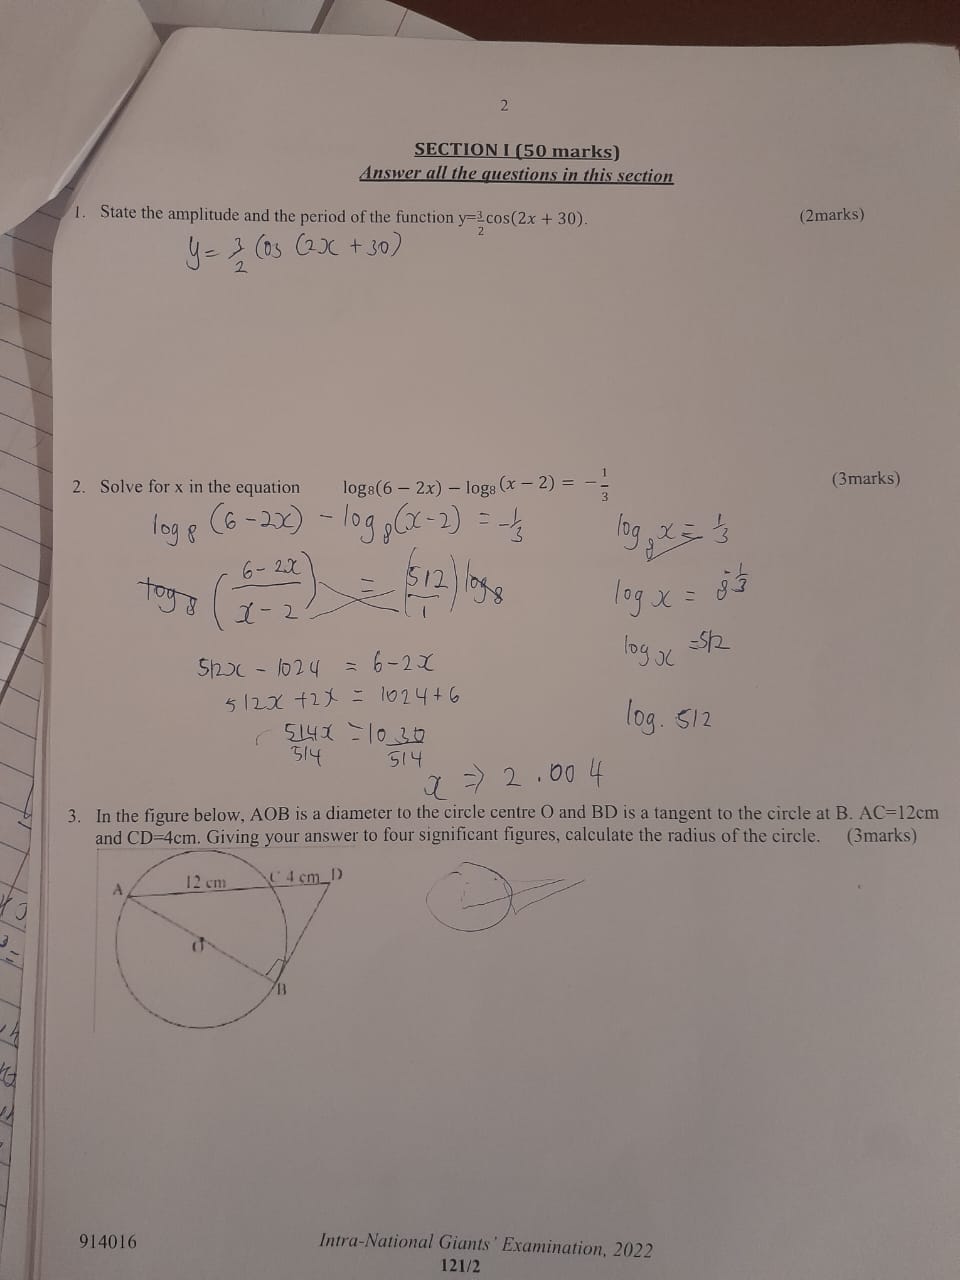 2
SECTION I (50 marks)
Answer all the questions in this section
1. State the amplitude and the period of the function y=3/2cos(2x + 30). (2marks)
y= 3/2 Cos (2x +30)
2. Solve for x in the equation log₈(6 – 2x) – log₈(x – 2) = –1/3 (3marks)
log₈ (6-2x) - log₈(x-2) = -1/3
log₈ x = 1/3
log₈ (6-2x / x-2) = (512/1) log₈
log x = 8^-1/3
512x - 1024 = 6-2x
log x =512
512x +2x = 1024+6
514x/514 = 1030/514
log. 512
x ⇒ 2.004
3. In the figure below, AOB is a diameter to the circle centre O and BD is a tangent to the circle at B. AC=12cm
and CD=4cm. Giving your answer to four significant figures, calculate the radius of the circle. (3marks)
A 12 cm C 4 cm D
O
B
914016
Intra-National Giants' Examination, 2022
121/2